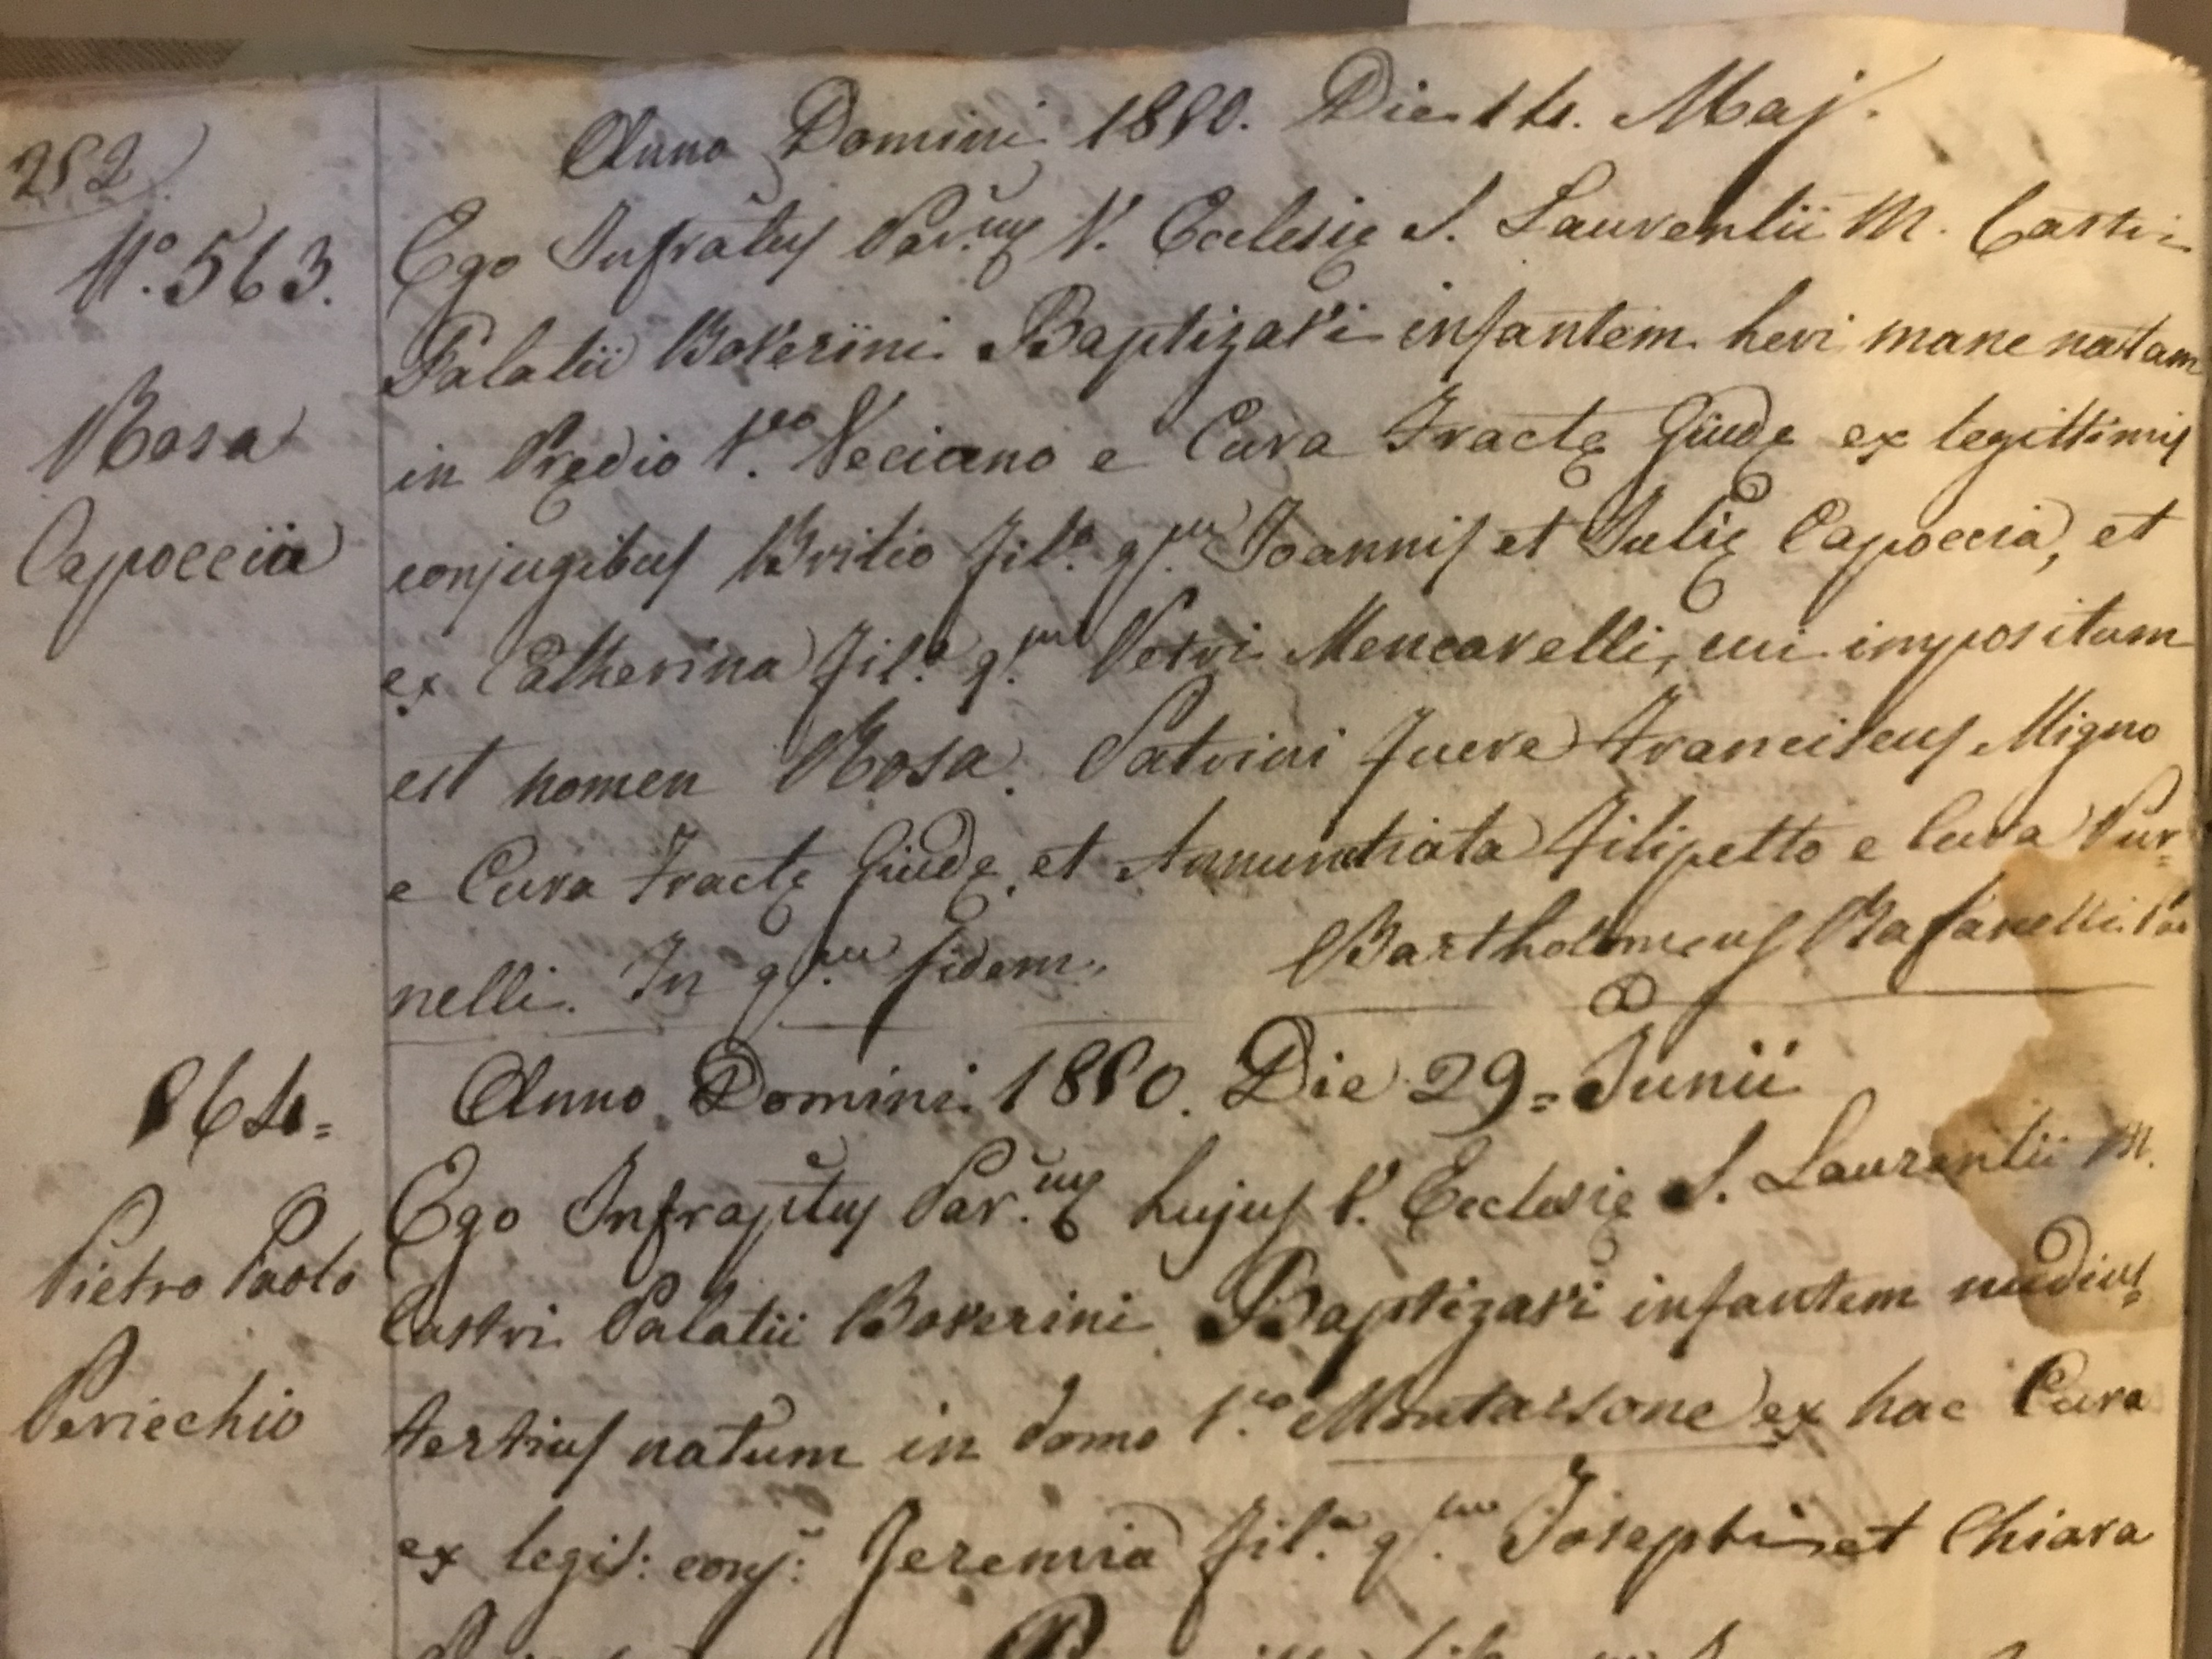 252
Anno Domini 1850. Die 14. Maj.
N.º 563.
Rosa
Capoccia
Ego Infratus Par.us V. Ecclesię S. Laurentii M. Castri
Palatii Boverini Baptizavi infantem heri mane natam
in Prędio V.to Veciano e Cura Fractę Giudę ex legittimis
conjugibus Britio fil.º q.m Joannis et Julię Capoccia, et
ex Catherina fil.ª q.m Petri Mencarelli, cui impositum
est nomen Rosa. Patrini fuere Franciscus Migno
e Cura Fractę Giudę, et Annuntiata Filipetto e Cura Pur=
nelli. In q.m fidem. Bartholomeus Bafanelli Par
564=
Pietro Paolo
Periechio
Anno Domini 1850. Die 29= Junii
Ego Infraptus Par.us hujus V. Ecclesię S. Laurentii M.
Castri Palatii Boverini Baptizavi infantem nudius=
tertius natum in domo V.to Montarsone ex hac Cura
ex legit: conj: Jeremia fil.º q.m Josephi et Chiara